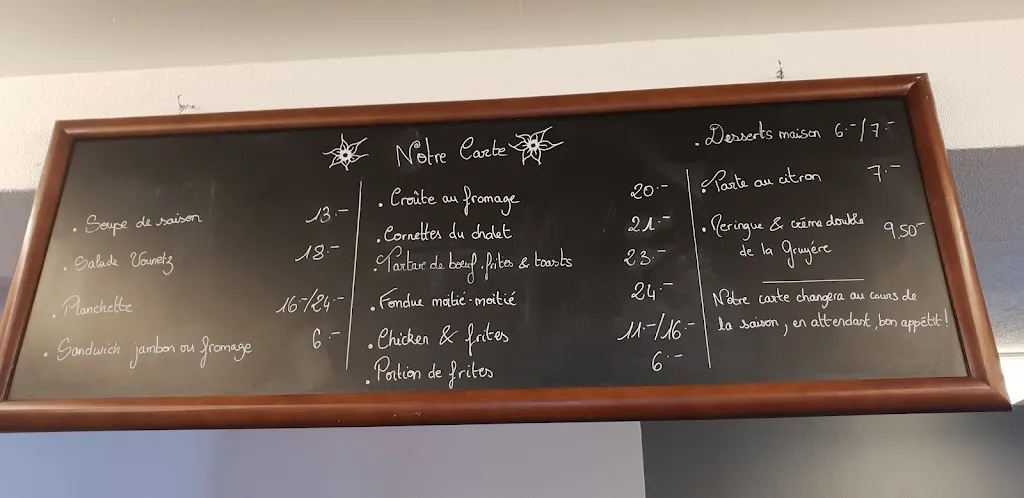 Notre Carte
. Soupe de saison 13.-
. Salade Vounetz 18.-
. Planchette 16.-/24.-
. Sandwich jambon ou fromage 6.-
. Croûte au fromage 20.-
. Cornettes du chalet 21.-
. Tartare de boeuf, frites & toasts 23.-
. Fondue moitié-moitié 24.-
. Chicken & frites 11.-/16.-
. Portion de frites 6.-
. Desserts maison 6.-/7.-
. Tarte au citron 7.-
. Meringue & crème double
de la Gruyère 9,50-
Notre carte changera au cours de
la saison, en attendant, bon appétit!